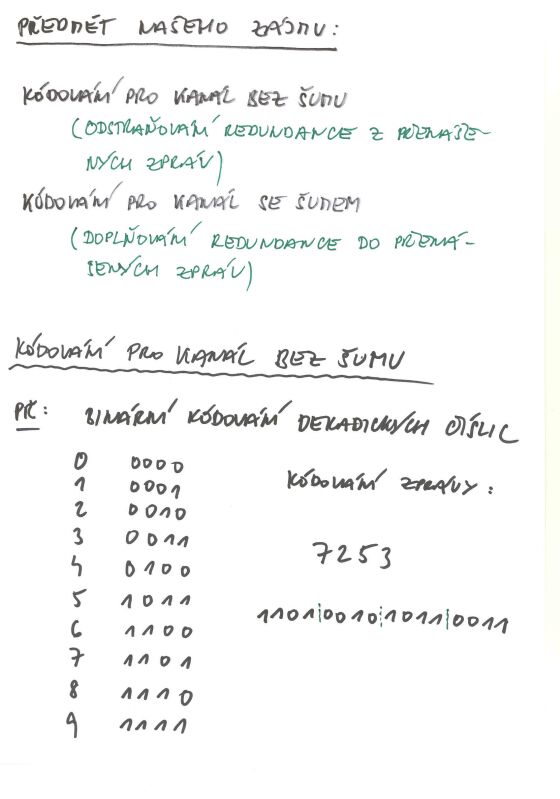 PŘEDMĚT NAŠEHO ZÁJMU:
KÓDOVÁNÍ PRO KANÁL BEZ ŠUMU
(ODSTRAŇOVÁNÍ REDUNDANCE Z PŘENÁŠE-
NÝCH ZPRÁV)
KÓDOVÁNÍ PRO KANÁL SE ŠUMEM
(DOPLŇOVÁNÍ REDUNDANCE DO PŘENÁ-
ŠENÝCH ZPRÁV)
KÓDOVÁNÍ PRO KANÁL BEZ ŠUMU
PŘ: BINÁRNÍ KÓDOVÁNÍ DEKADICKÝCH ČÍSLIC
0 0000
1 0001
2 0010
3 0011
4 0100
5 1011
6 1100
7 1101
8 1110
9 1111
KÓDOVÁNÍ ZPRÁVY:
7253
1101|0010|1011|0011